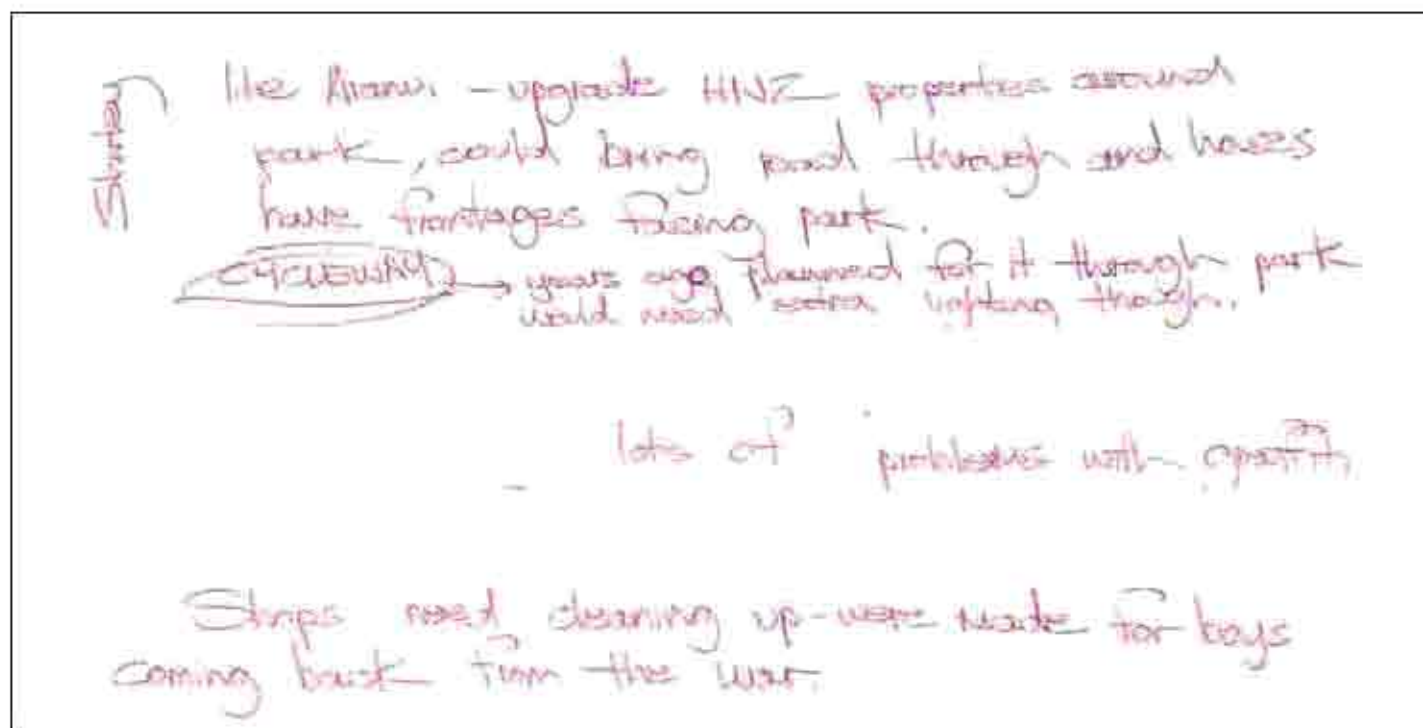 Shirley
like - upgrade HNZ properties around
park, could bring road through and houses
have frontages facing park.
CYCLEWAY → years ago planned for it through park
would need extra lighting though.
lots of problems with graffiti
Shops need cleaning up - were made for boys
coming back from the war.